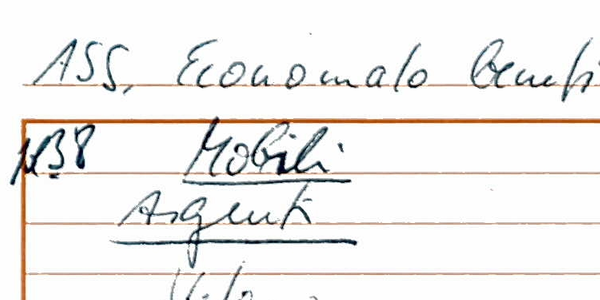 ASS. Economato benefi
Mobili
Argenti